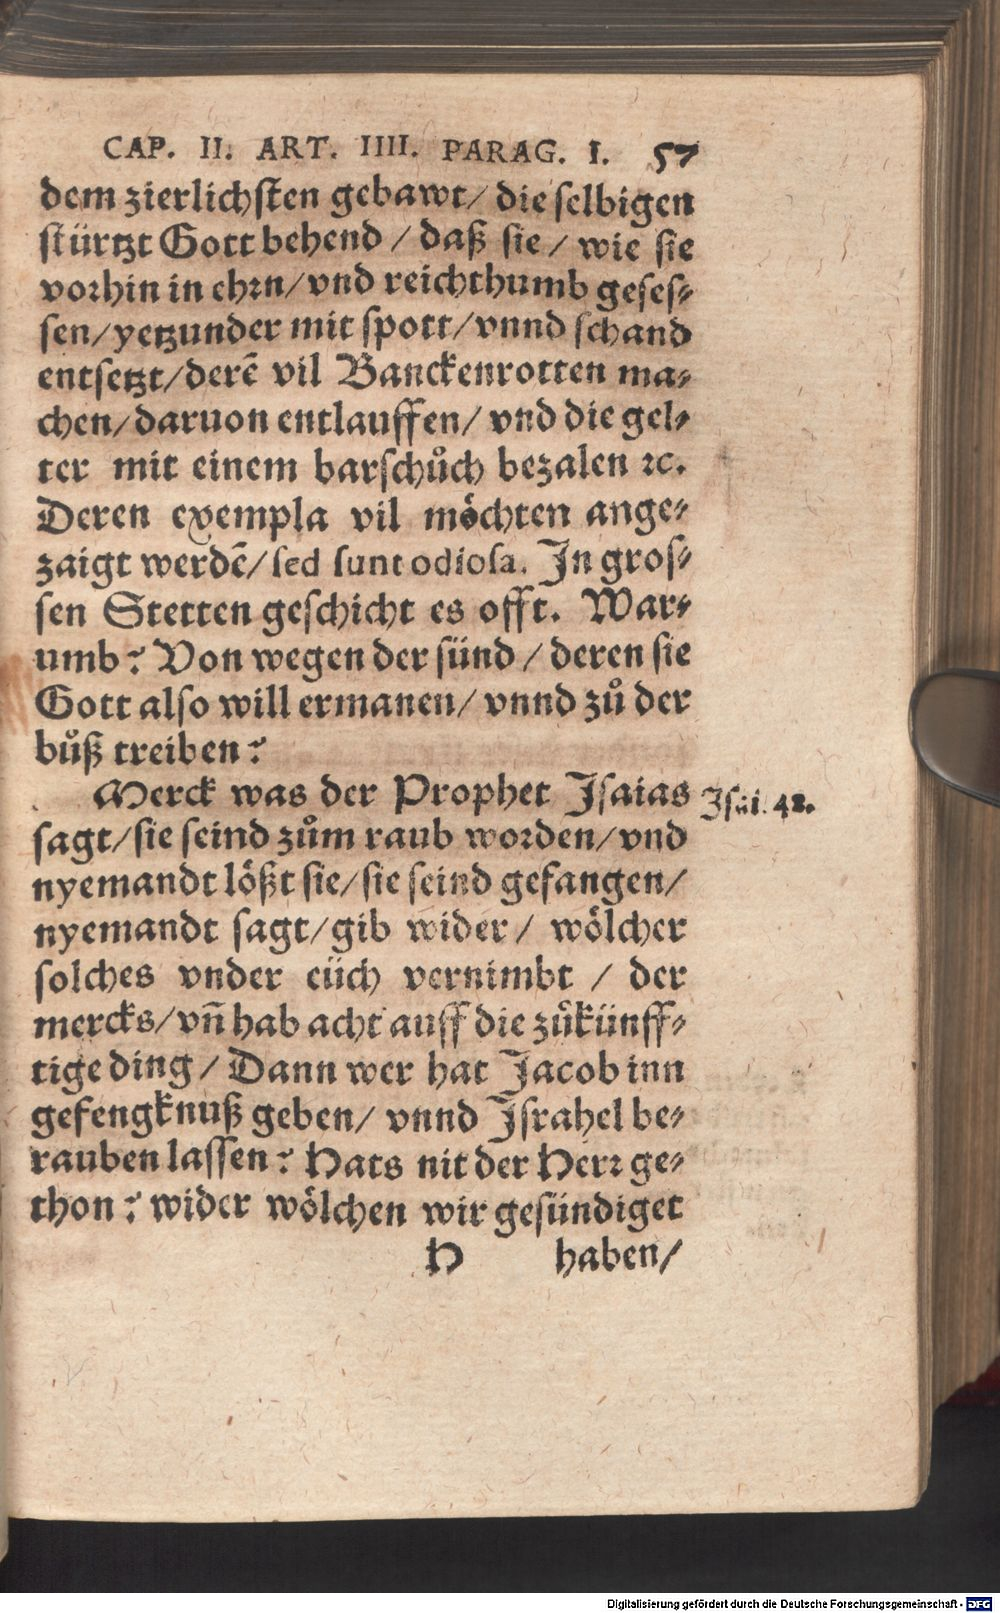 CAP. II. ART. IIII. PARAG. I. 57
dem zierlichsten gebawt/ die selbigen
stürtzt Gott behend / daß sie / wie sie
vorhin in ehrn/ vnd reichthumb geses⸗
sen/ yetzunder mit spott/ vnnd schand
entsetzt/ derē vil Banckenrotten ma⸗
chen/ daruon entlauffen/ vnd die gel⸗
ter mit einem barschůch bezalen ꝛc.
Deren exempla vil möchten ange⸗
zaigt werdē/ sed sunt odiosa. In gros⸗
sen Stetten geschicht es offt. War⸗
umb? Von wegen der sünd / deren sie
Gott also will ermanen/ vnnd zů der
bůß treiben?
Merck was der Prophet Isaias
Isai. 42.
sagt/ sie seind zům raub worden/ vnd
nyemandt lößt sie/ sie seind gefangen/
nyemandt sagt/ gib wider / wölcher
solches vnder eüch vernimbt / der
mercks/ vñ hab acht auff die zůkünff⸗
tige ding / Dann wer hat Jacob inn
gefengknuß geben/ vnnd Israhel be⸗
rauben lassen? Hats nit der Herr ge⸗
thon? wider wölchen wir gesündiget
H haben/
Digitalisierung gefördert durch die Deutsche Forschungsgemeinschaft - DFG